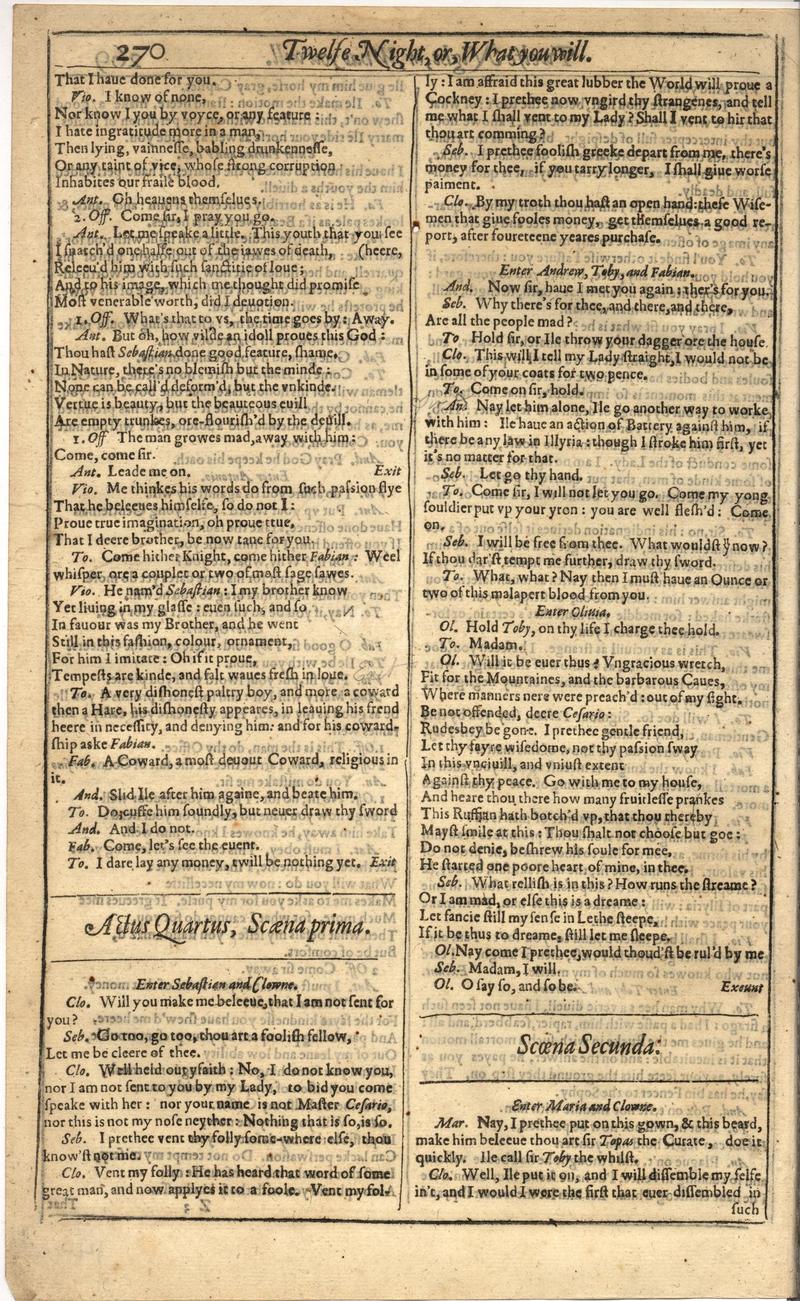 270
Twelfe Night, or, What you will.
That I haue done for you.
Vio. I know of none,
Nor know I you by voyce, or any feature:
I hate ingratitude more in a man,
Then lying, vainnesse, babling drunkennesse,
Or any taint of vice, whose strong corruption
Inhabites our fraile blood.
Ant. Oh heauens themselues.
2. Off. Come sir, I pray you go.
Ant. Let me speake a little. This youth that you see
I snatch'd one halfe out of the iawes of death, (heere,
Releeu'd him with such sanctitie of loue;
And to his image, which me thought did promise
Most venerable worth, did I deuotion.
1. Off. What's that to vs, the time goes by: Away.
Ant. But oh, how vilde an idoll proues this God:
Thou hast Sebastian done good feature, shame.
In Nature, there's no blemish but the minde:
None can be call'd deform'd, but the vnkinde.
Vertue is beauty, but the beauteous euill
Are empty trunkes, ore-flourish'd by the deuill.
1. Off The man growes mad, away with him:
Come, come sir.
Ant. Leade me on. Exit
Vio. Me thinkes his words do from such passion flye
That he beleeues himselfe, so do not I:
Proue true imagination, oh proue true,
That I deere brother, be now tane for you.
To. Come hither Knight, come hither Fabian: Weel
whisper ore a couplet or two of most sage sawes.
Vio. He nam'd Sebastian: I my brother know
Yet liuing in my glasse: euen such, and so
In fauour was my Brother, and he went
Still in this fashion, colour, ornament,
For him I imitate: Oh if it proue,
Tempests are kinde, and salt waues fresh in loue.
To. A very dishonest paltry boy, and more a coward
then a Hare, his dishonesty appeares, in leauing his frend
heere in necessity, and denying him: and for his coward-
ship aske Fabian.
Fab. A Coward, a most deuout Coward, religious in
it.
And. Slid Ile after him againe, and beate him.
To. Do, cuffe him soundly, but neuer draw thy sword
And. And I do not.
Fab. Come, let's see the euent.
To. I dare lay any money, twill be nothing yet. Exit
Actus Quartus, Scæna prima.
Enter Sebastian and Clowne.
Clo. Will you make me beleeue, that I am not sent for
you?
Seb. Go too, go too, thou art a foolish fellow,
Let me be cleere of thee.
Clo. Well held out yfaith: No, I do not know you,
nor I am not sent to you by my Lady, to bid you come
speake with her: nor your name is not Master Cesario,
nor this is not my nose neyther: Nothing that is so, is so.
Seb. I prethee vent thy folly some-where else, thou
know'st not me.
Clo. Vent my folly: He has heard that word of some
great man, and now applyes it to a foole. Vent my fol-
ly: I am affraid this great lubber the World will proue a
Cockney: I prethee now vngird thy strangenes, and tell
me what I shall vent to my Lady? Shall I vent to hir that
thou art comming?
Seb. I prethee foolish greeke depart from me, there's
money for thee, if you tarry longer, I shall giue worse
paiment.
Clo. By my troth thou hast an open hand: these Wise-
men that giue fooles money, get themselues a good re-
port, after foureteene yeares purchase.
Enter Andrew, Toby, and Fabian.
And. Now sir, haue I met you again: ther's for you.
Seb. Why there's for thee, and there, and there,
Are all the people mad?
To Hold sir, or Ile throw your dagger ore the house
Clo. This will I tell my Lady straight, I would not be
in some of your coats for two pence.
To. Come on sir, hold.
An. Nay let him alone, Ile go another way to worke
with him: Ile haue an action of Battery against him, if
there be any law in Illyria: though I stroke him first, yet
it's no matter for that.
Seb. Let go thy hand.
To. Come sir, I will not let you go. Come my yong
souldier put vp your yron: you are well flesh'd: Come
on.
Seb. I will be free from thee. What wouldst yͧ now?
If thou dar'st tempt me further, draw thy sword.
To. What, what? Nay then I must haue an Ounce or
two of this malapert blood from you.
Enter Oliuia.
Ol. Hold Toby, on thy life I charge thee hold.
To. Madam.
Ol. Will it be euer thus? Vngracious wretch,
Fit for the Mountaines, and the barbarous Caues,
Where manners nere were preach'd: out of my sight.
Be not offended, deere Cesario:
Rudesbey be gone. I prethee gentle friend,
Let thy fayre wisedome, not thy passion sway
In this vnciuill, and vniust extent
Against thy peace. Go with me to my house,
And heare thou there how many fruitlesse prankes
This Ruffian hath botch'd vp, that thou thereby
Mayst smile at this: Thou shalt not choose but goe:
Do not denie, beshrew his soule for mee,
He started one poore heart of mine, in thee.
Seb. What rellish is in this? How runs the streame?
Or I am mad, or else this is a dreame:
Let fancie still my sense in Lethe steepe,
If it be thus to dreame, still let me sleepe.
Ol. Nay come I prethee, would thoud'st be rul'd by me
Seb. Madam, I will.
Ol. O say so, and so be. Exeunt
Scœna Secunda.
Enter Maria and Clowne.
Mar. Nay, I prethee put on this gown, & this beard,
make him beleeue thou art sir Topas the Curate, doe it
quickly. Ile call sir Toby the whilst.
Clo. Well, Ile put it on, and I will dissemble my selfe
in't, and I would I were the first that euer dissembled in
such